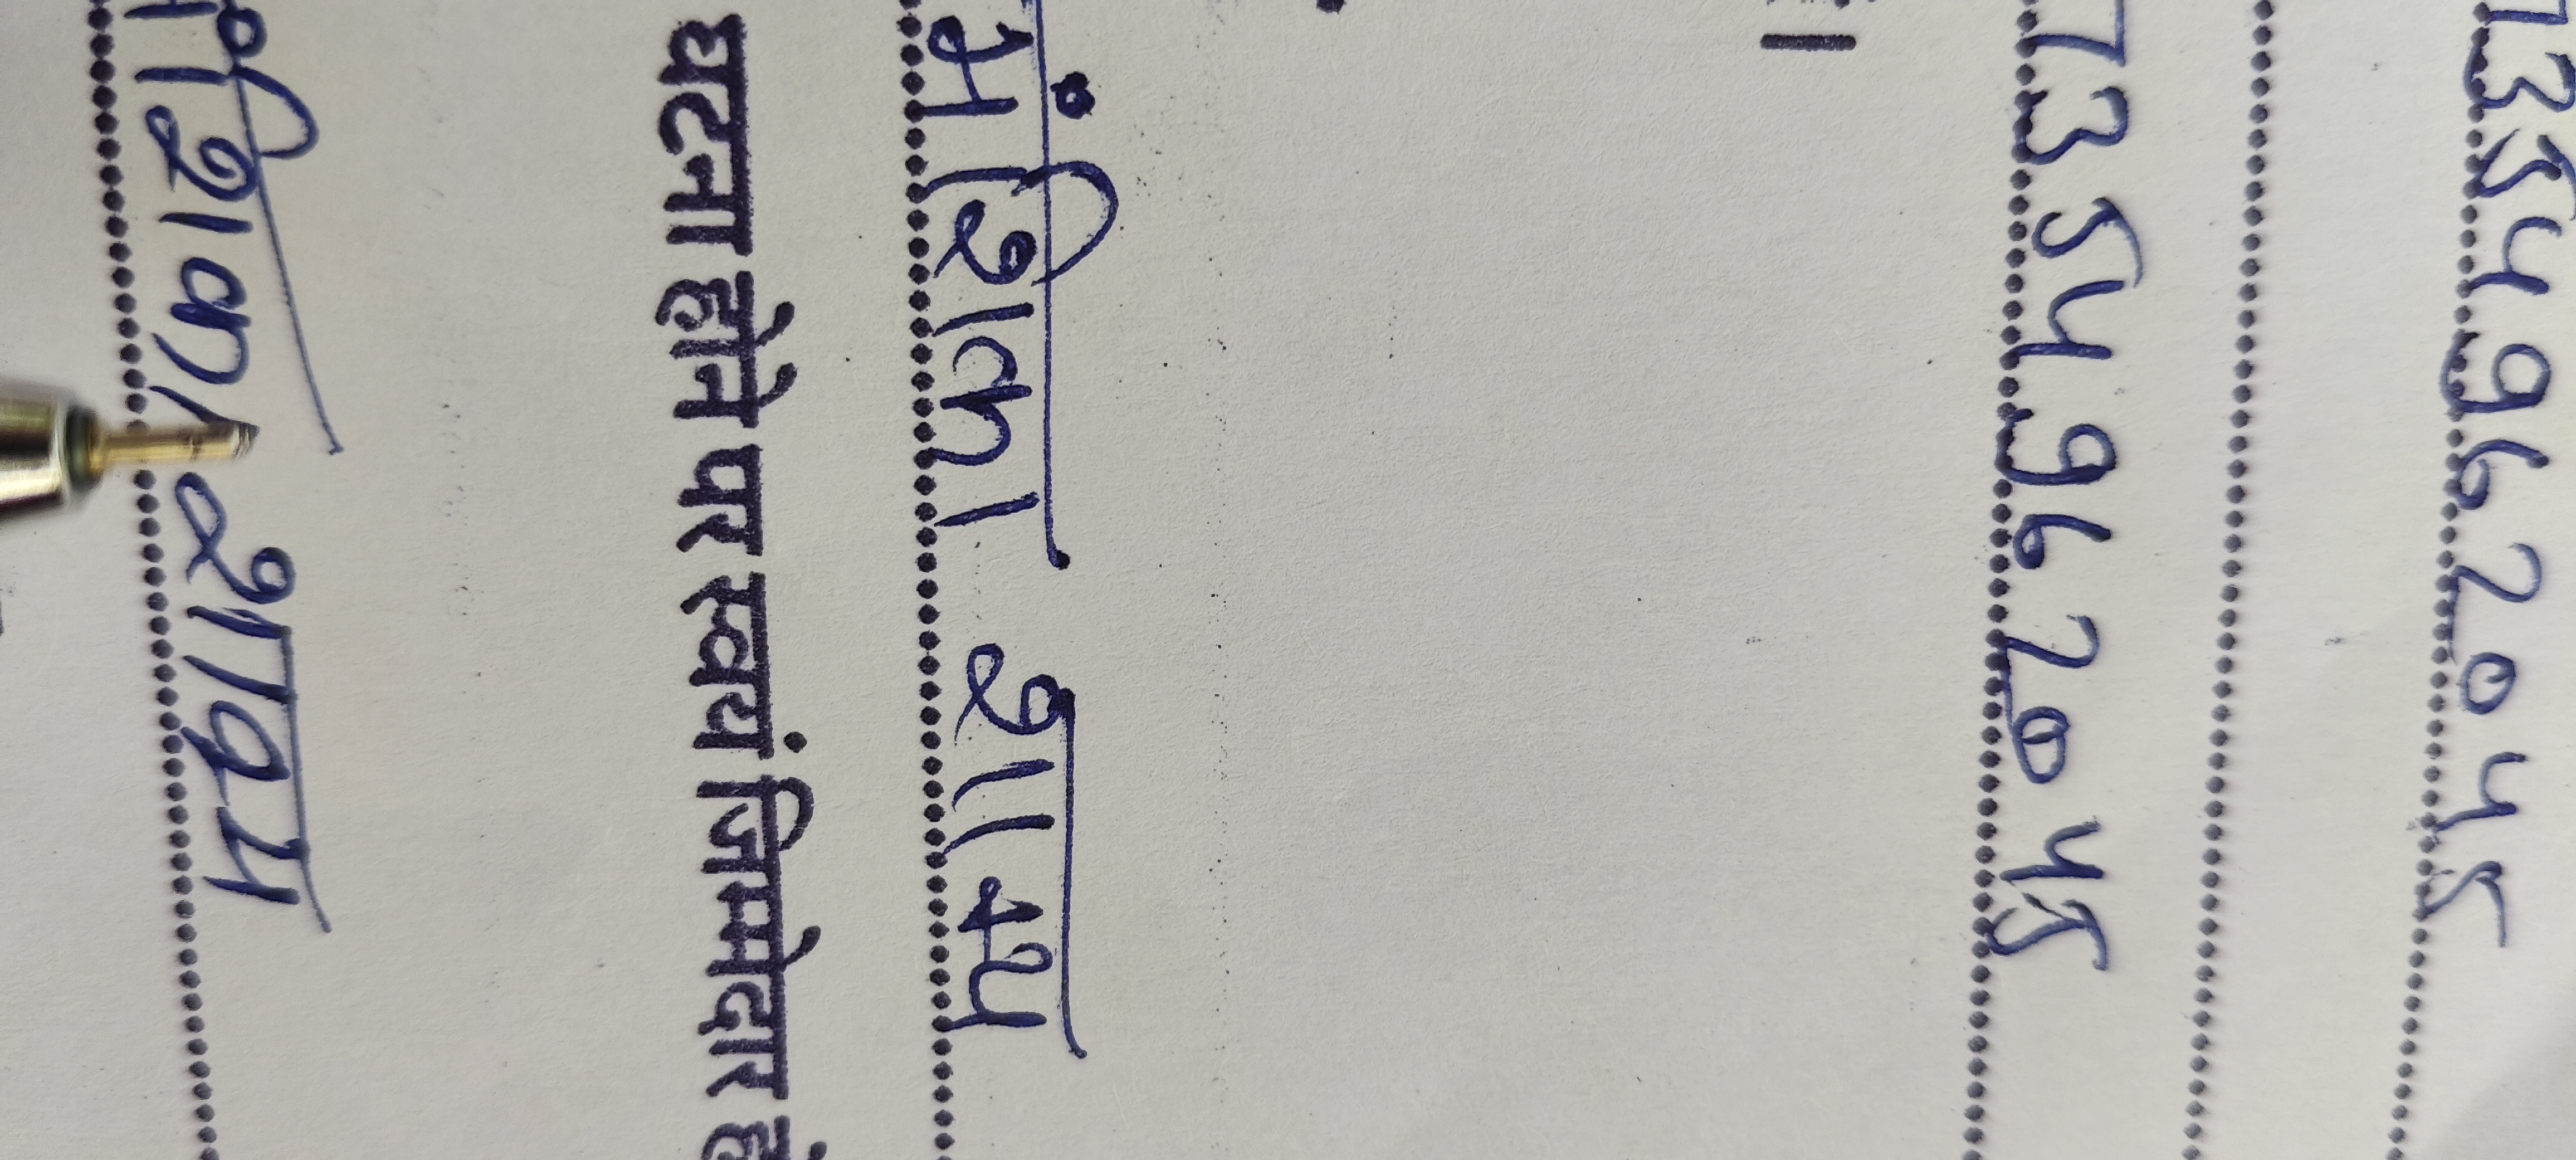 7354962045
7354962045
शाक्य
घटना होने पर स्वयं जिम्मेदार
शाक्य